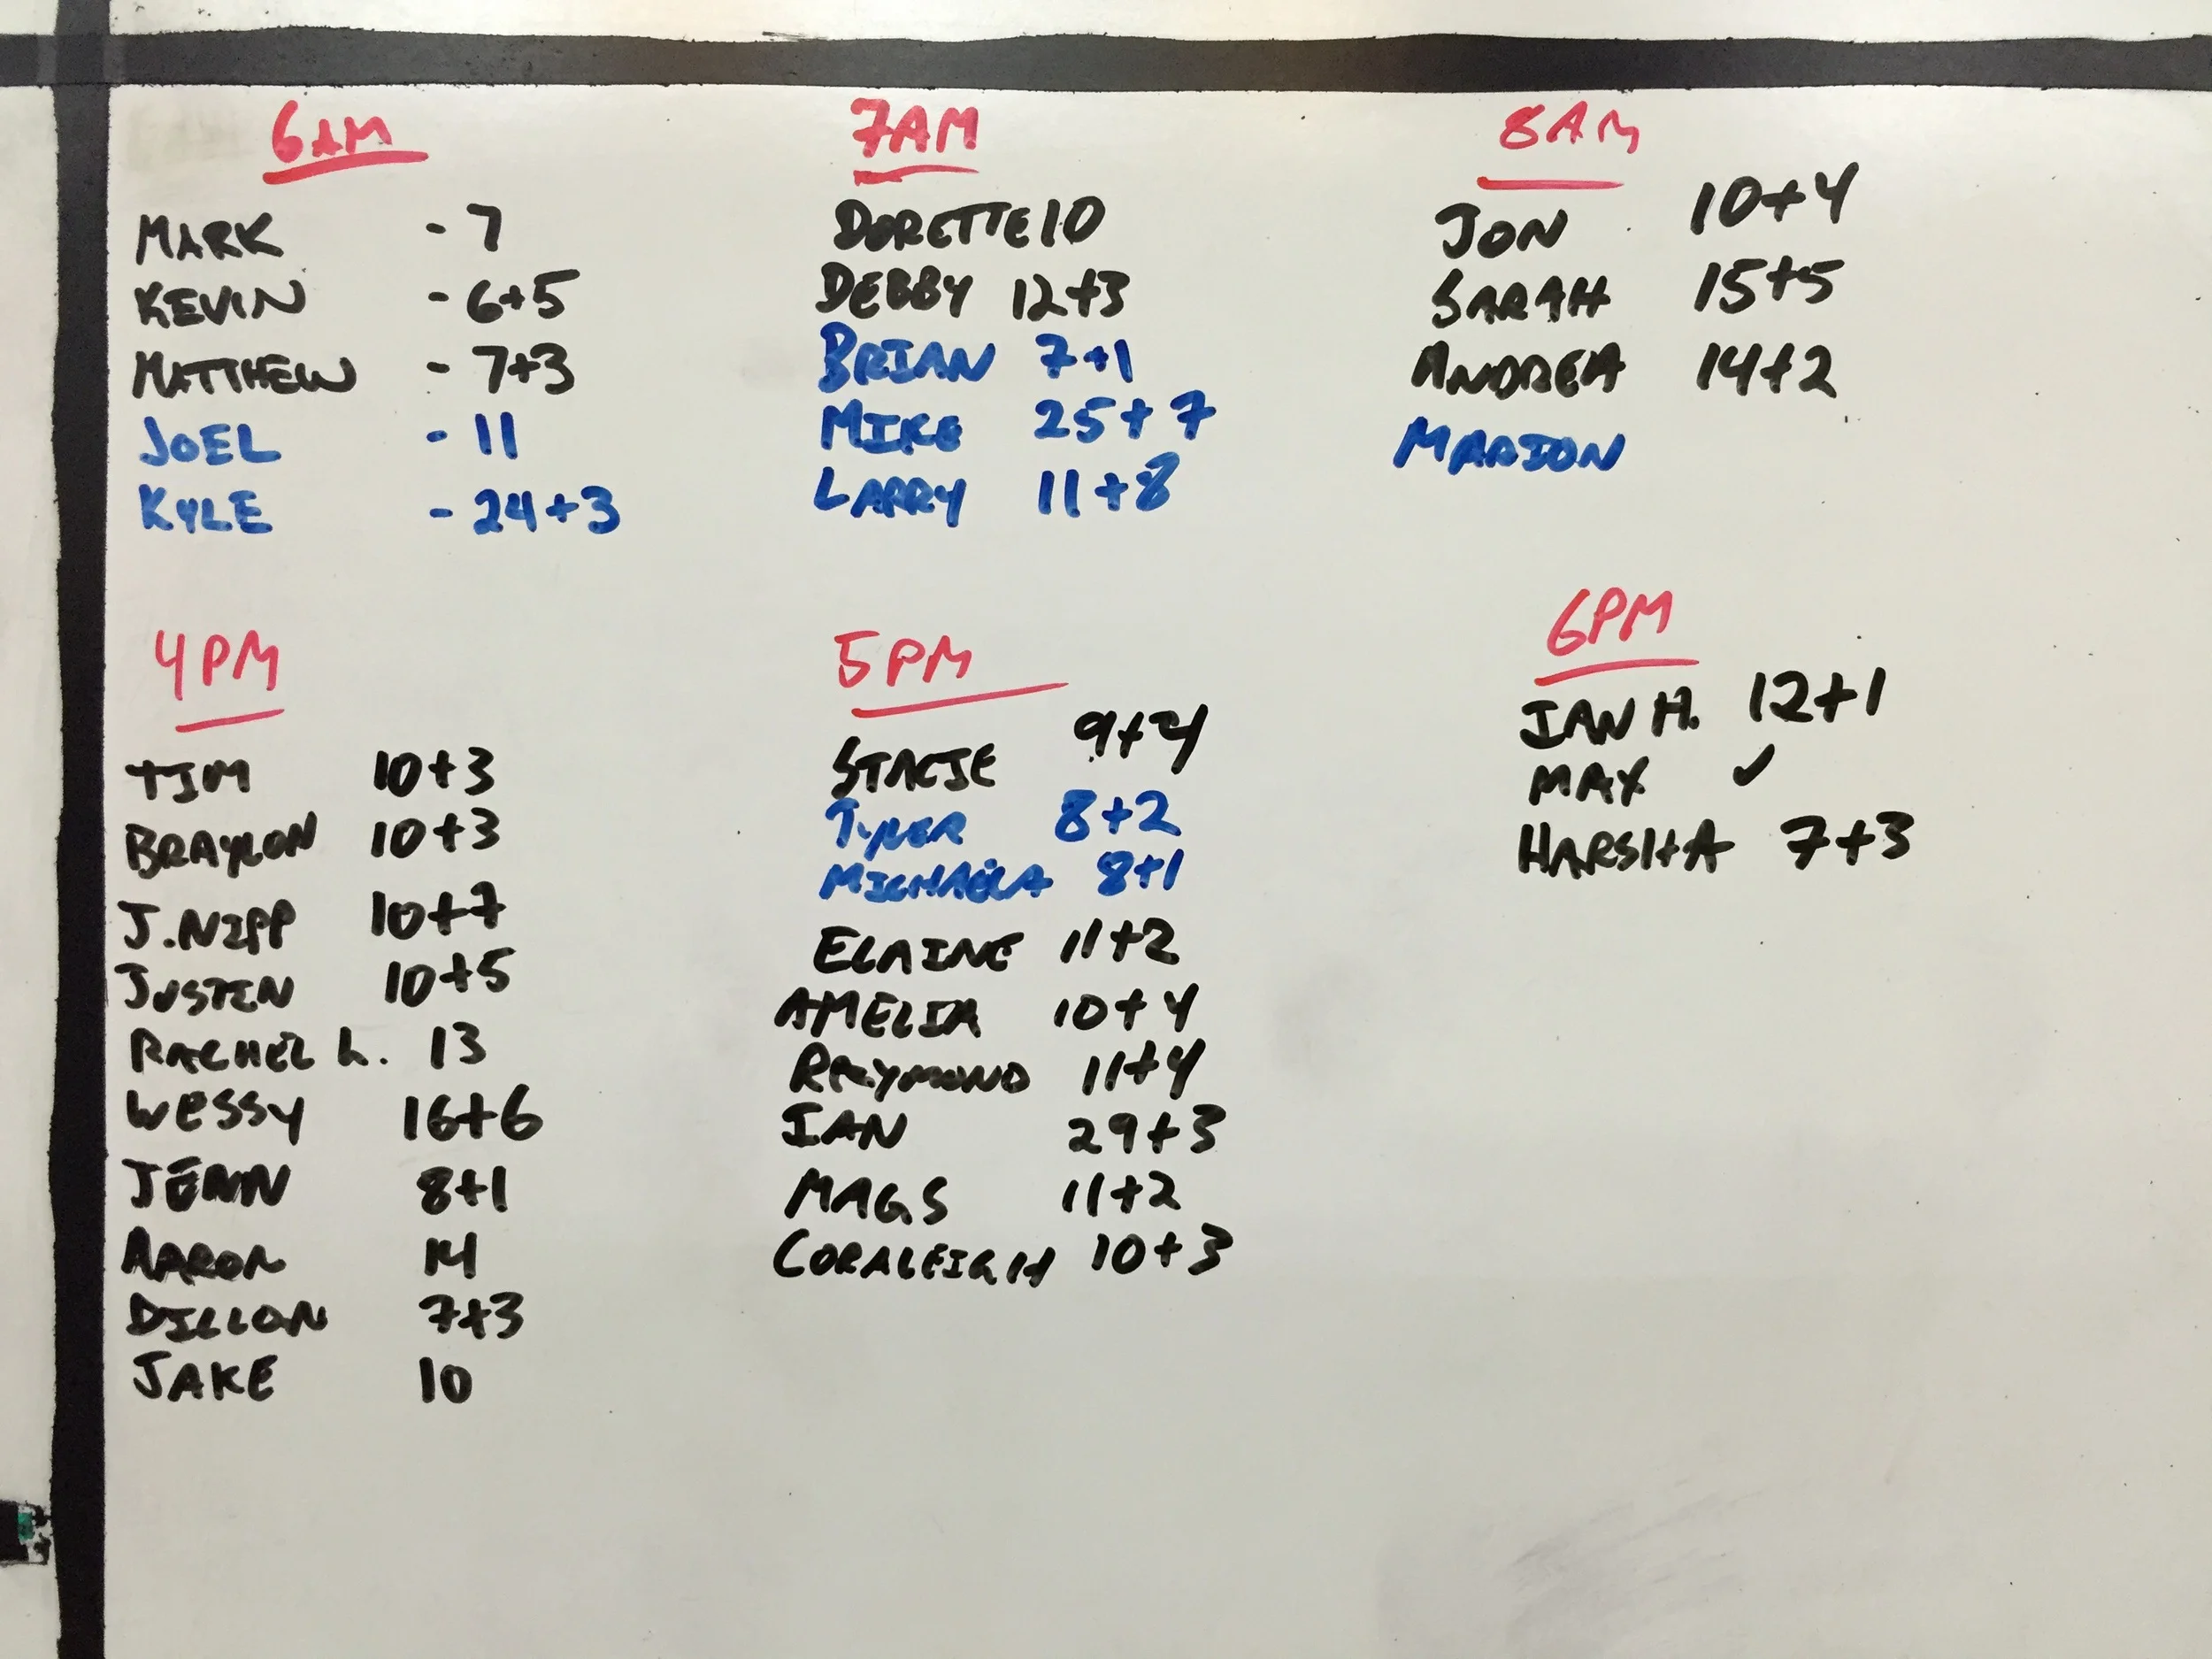 6AM
MARK - 7
KEVIN - 6+5
MATTHEW - 7+3
JOEL - 11
KYLE - 24+3
7AM
DORETTE 10
DEBBY 12+3
BRIAN 7+1
MIKE 25+7
LARRY 11+8
8AM
JON 10+4
SARAH 15+5
ANDREA 14+2
MARION
4PM
TIM 10+3
BRAYLON 10+3
J.NIPP 10+7
JUSTIN 10+5
RACHEL L. 13
WESSY 16+6
JENN 8+1
AARON 14
DILLON 7+3
JAKE 10
5PM
STACIE 9+4
TYLER 8+2
MICHAELA 8+1
ELAINE 11+2
AMELIA 10+4
RAYMOND 11+4
IAN 29+3
MAGS 11+2
CORALEIGH 10+3
6PM
IAN H. 12+1
MAX ✓
HARSHA 7+3